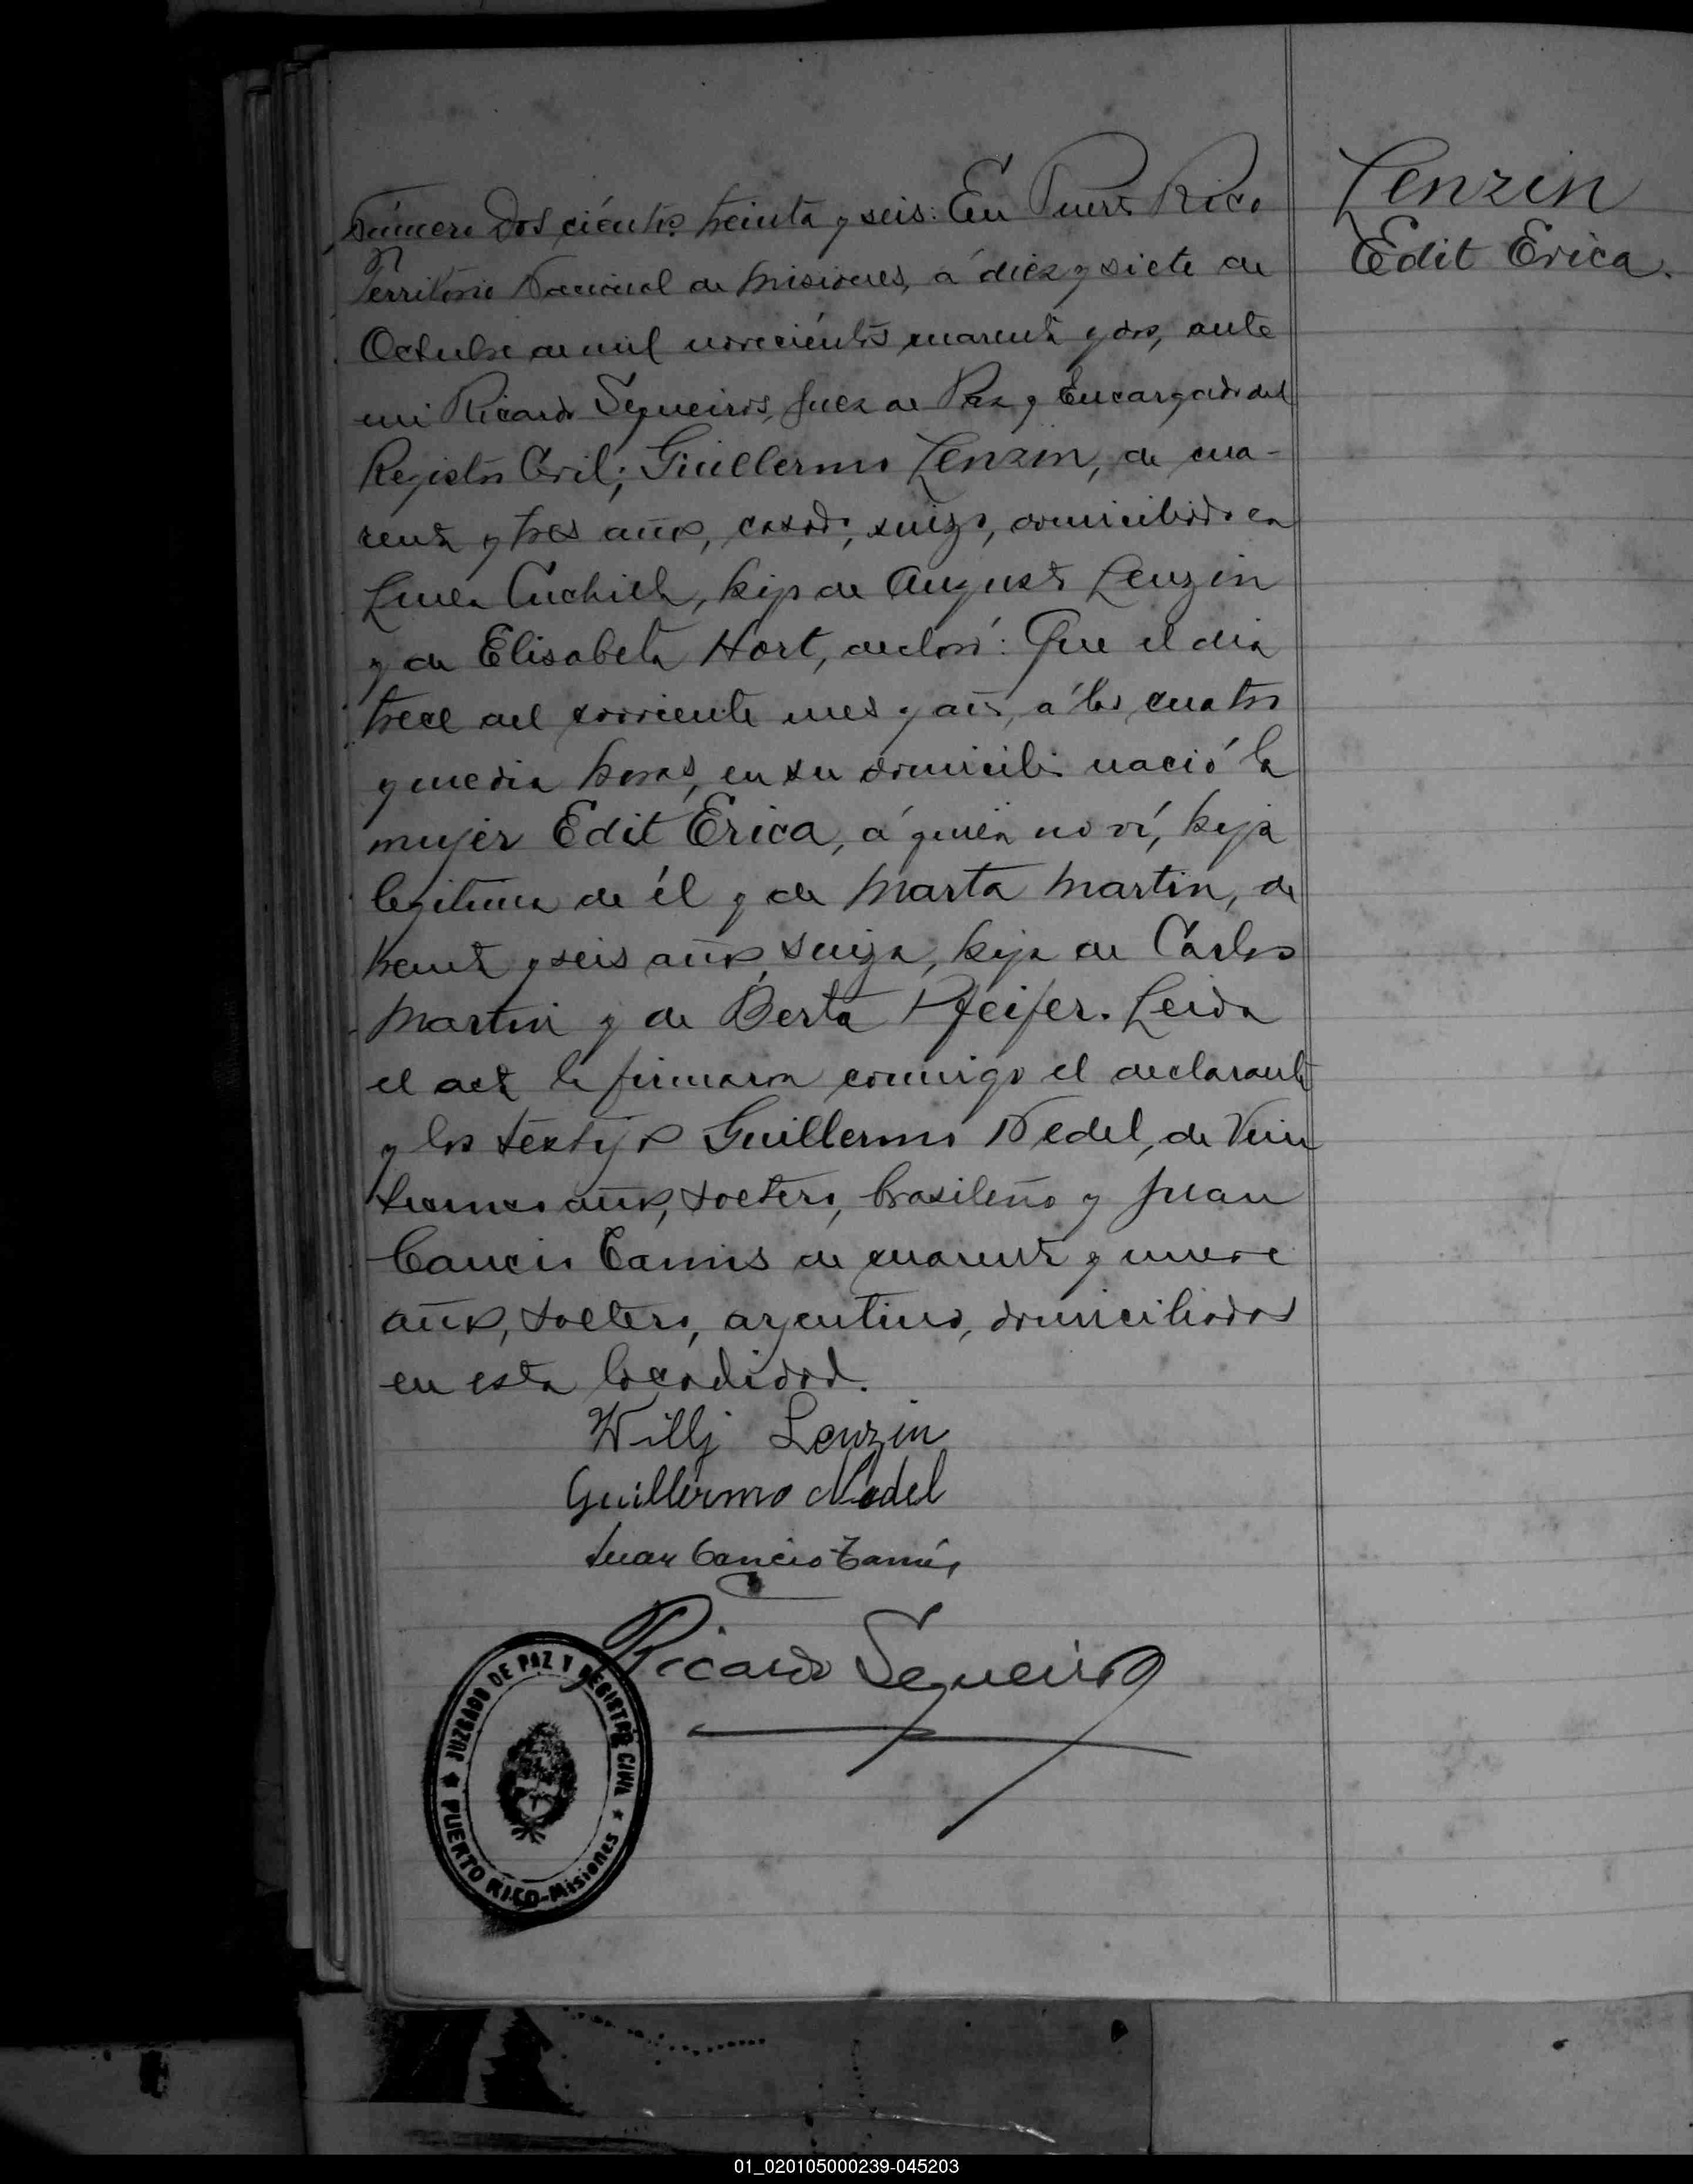 Número Dos cientos treinta y seis: En Puerto Rico
Territorio Nacional de Misiones, a diez y siete de
Octubre de mil novecientos cuarenta y dos, ante
mi Ricardo Sequeiros, Juez de Paz y Encargado del
Registro Civil; Guillermo Lenzin, de cua-
renta y tres años, casado, suizo, domiciliado en
Linea Cuchilla, hijo de Augusto Lenzin
y de Elisabeta Hort, declaró: Que el dia
trece del corriente mes y año, a las cuatro
y media horas, en su domicilio nació la
mujer Edit Erica, á quien no ví, hija
legitima de él y de Marta Martin, de
treinta y seis años, suiza, hija de Cárlos
Martin y de Berta Pfeifer. Leida
el acta la firmaron conmigo el declarante
y los testigos Guillermo Nedel, de
años, soltero, brasileño y Juan
Cancio Camis de cuarenta y nueve
años, soltero, argentino, domiciliados
en esta localidad.
Willj Lenzin
Guillermo Nedel
Juan Cancio
Ricardo Sequeiros
JUZGADO DE PAZ Y REGISTRO CIVIL
PUERTO RICO-Misiones
Lenzin
Edit Erica.
01_020105000239-045203